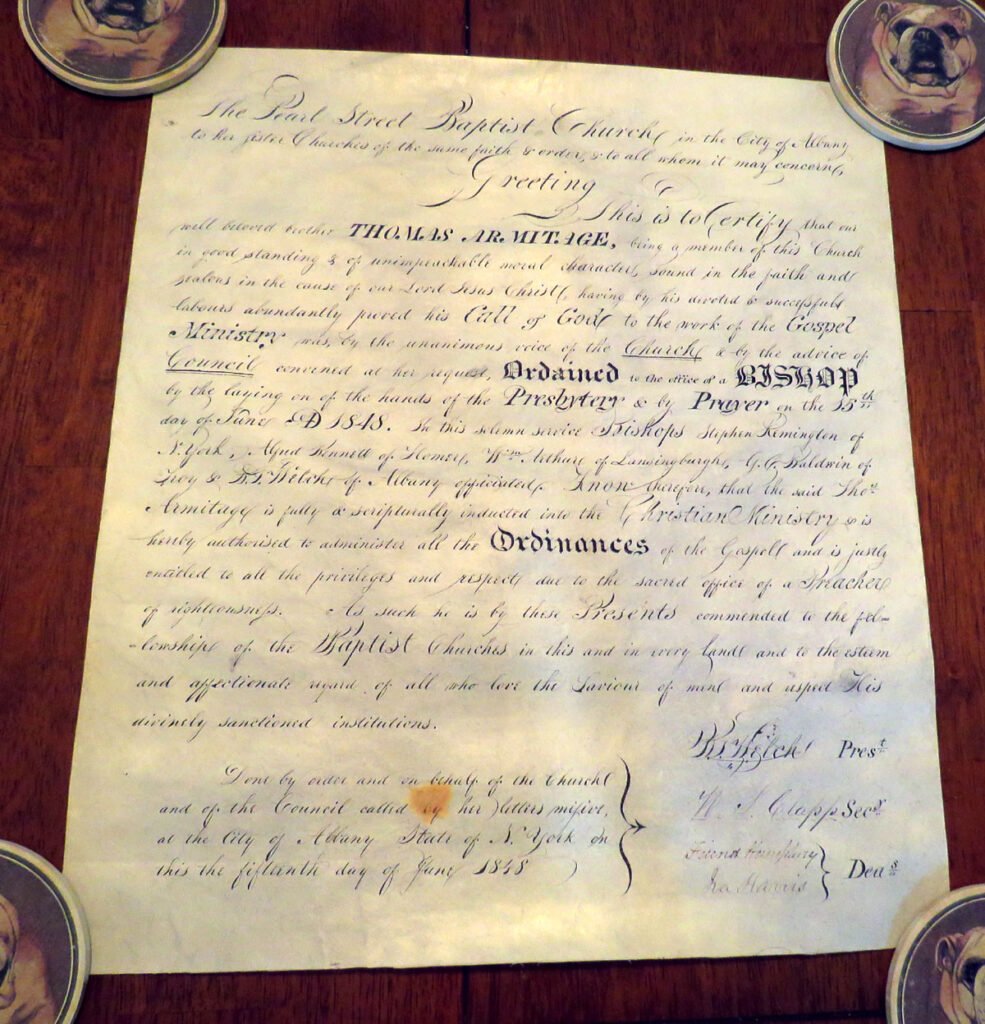 The Pearl Street Baptist Church in the City of Albany
to her sister Churches of the same faith & order, & to all whom it may concern,
Greeting
This is to Certify that our
well beloved brother THOMAS ARMITAGE, being a member of this Church
in good standing & of unimpeachable moral character, sound in the faith and
zealous in the cause of our Lord Jesus Christ, having by his devoted & successful
labours abundantly proved his Call of God to the work of the Gospel
Ministry was, by the unanimous voice of the Church & by the advice of
Council convened at her request, Ordained to the office of a BISHOP
by the laying on of the hands of the Presbytery & by Prayer on the 15th
day of June AD 1848. In this solemn service Bishops Stephen Remington of
N. York, Alfred Bennett of Homer, Wm Arthur of Lansingburgh, G.C. Baldwin of
Troy & B.T. Welch of Albany officiated. Know therefore, that the said Thos
Armitage is fully & scripturally inducted into the Christian Ministry & is
hereby authorised to administer all the Ordinances of the Gospell and is justly
entitled to all the privileges and respect due to the sacred office of a Preacher
of righteousness. As such he is by these Presents commended to the fel-
-lowship of the Baptist Churches in this and in every land and to the esteem
and affectionate regard of all who love the Saviour of men and respect His
divinely sanctioned institutions.
B.T. Welch Prest
Done by order and on behalf of the Church
and of the Council called by her letters missive,
at the City of Albany State of N. York on
this the fifteenth day of June 1848
W. S. Clapp Secy
Friend Humphrey
Ira Harris
Deas